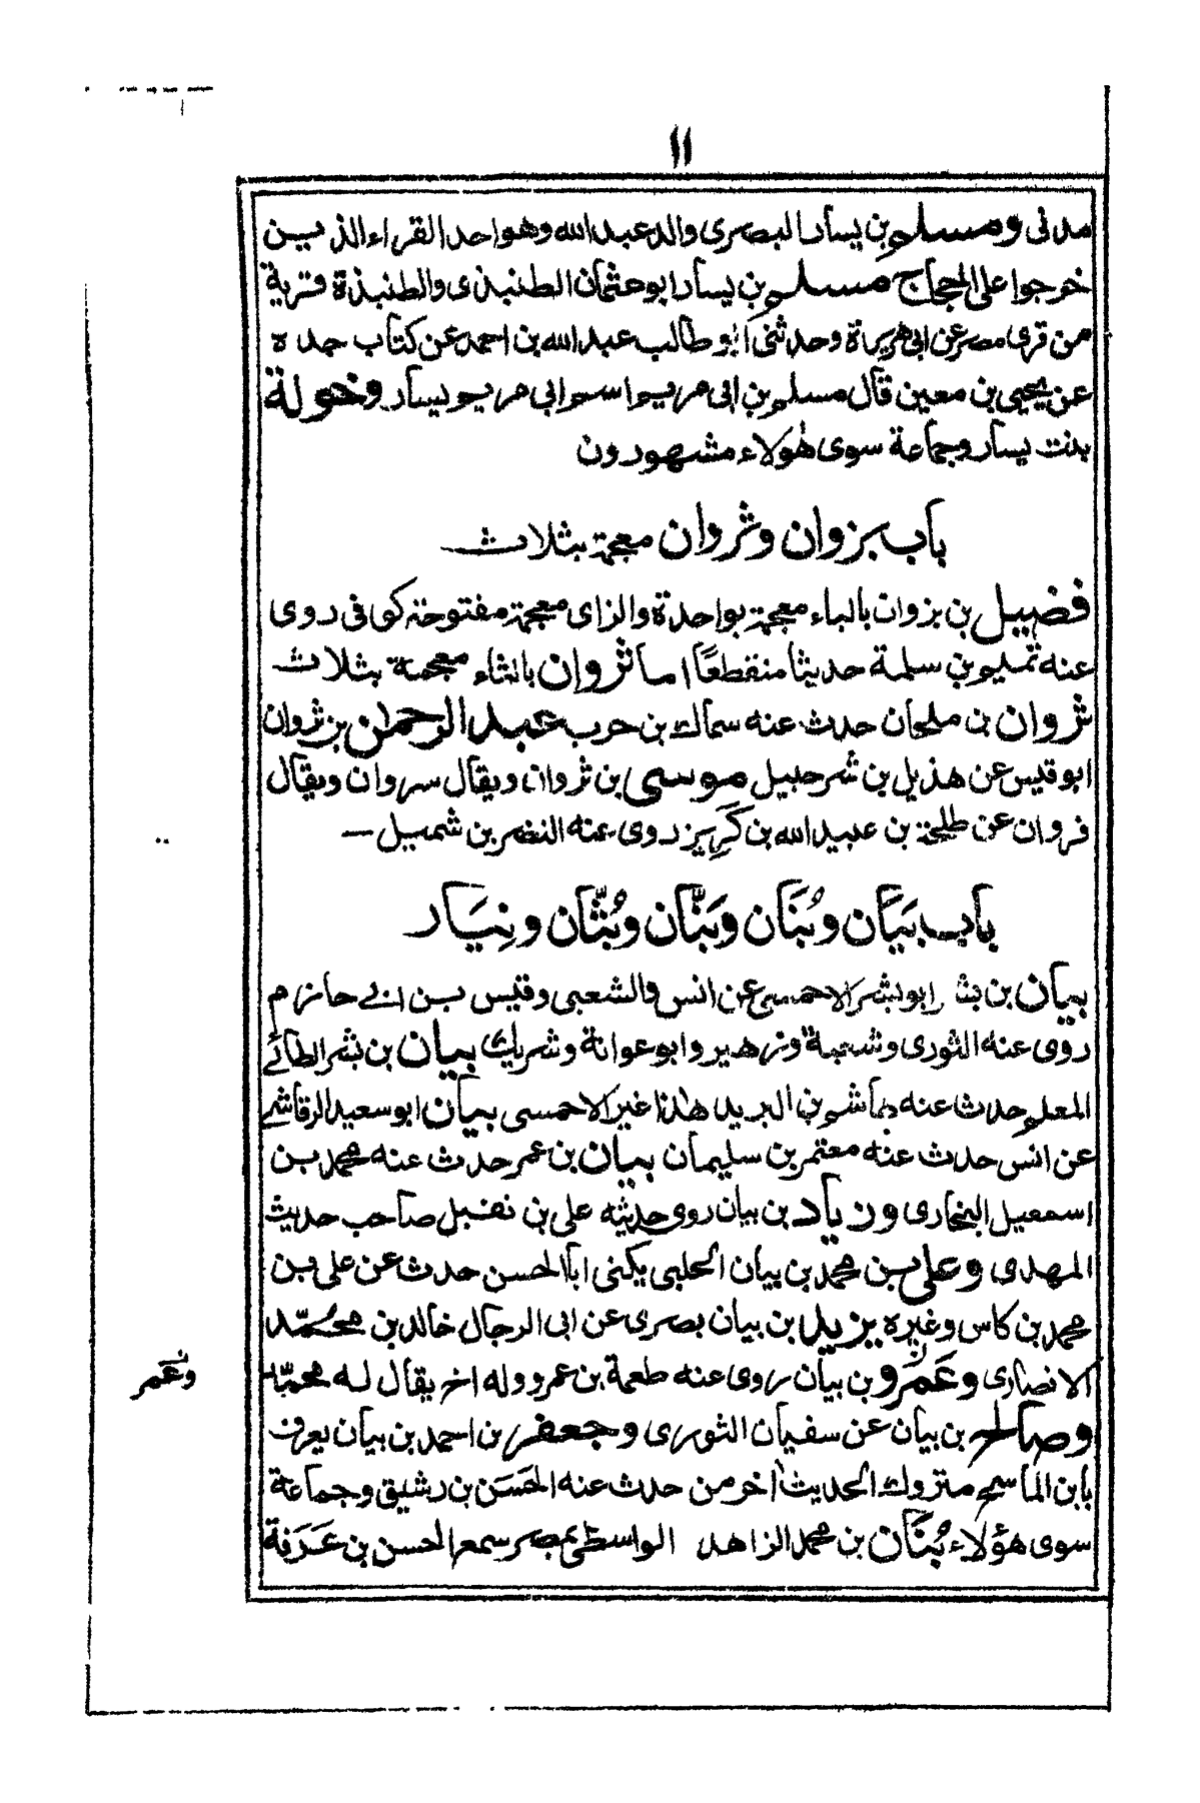 ١١
مدنى ومسلم بن يسار البصرى والد عبد الله وهو احد القراء الذين
خرجوا على الحجاج مسلم بن يسار ابو عثمان الطنبذى والطنبذة قرية
من قرى مصر عن ابى هريرة وحدثنى ابو طالب عبد الله بن احمد عن كتاب جده
عن يحيى بن معين قال مسلم بن ابى مريم اسم ابى مريم يسار وخولة
بنت يسار وجماعة سوى هٰولاء مشهورون
باب بزوان وثروان معجمة بثلاث
فضيل بن بزوان بالباء معجمة بواحدة والزاى معجمة مفتوحة كوفى روى
عنه تميم بن سلمة حديثا منقطعًا اما ثروان بالثاء معجمة بثلاث
ثروان بن ملحان حدث عنه سماك بن حرب عبد الرحمٰن بن ثروان
ابو قيس عن هذيل بن شرحبيل موسى بن ثروان ويقال سروان ويقال
فروان عن طلحة بن عبيد الله بن كَرِيز روى عنه النضر بن شميل —
باب بَيَان وبُنَان وبَنَّان وبُنَّان ونِيَار
بيان بن بشر ابو بشر الاحمسى عن انس والشعبى وقيس بن ابى حازم
روى عنه الثورى وشعبة وزهير وابو عوانة وشريك بيان بن بشر الطائے
المعلم حدث عنه هاشم بن البريد هٰذا غير الاحمسى بيان ابو سعيد الرقاشے
عن انس حدث عنه معتمر بن سليمان بيان بن عمر حدث عنه محمد بن
اسمعيل البخارى وزياد بن بيان روى حديثه على بن نفيل صاحب حديث
المهدى وعلى بن محمد بن بيان الحلبى يكنى ابا الحسن حدث عن على بن
محمد بن كاس وغيره يزيد بن بيان بصرى عن ابى الرجال خالد بن محمّد
الانصارى وعَمَرو بن بيان روى عنه طعمة بن عمرو وله اخ يقال له
وعمر
وصالح بن بيان عن سفيان الثورى وجعفر بن احمد بن بيان يعرف
بابن الماسح متروك الحديث اخر من حدث عنه الحَسَن بن رشيق وجماعة
سوى هؤلاء بُنَان بن محمد الزاهد الواسطى بمصر سمع الحسن بن عَرَفة